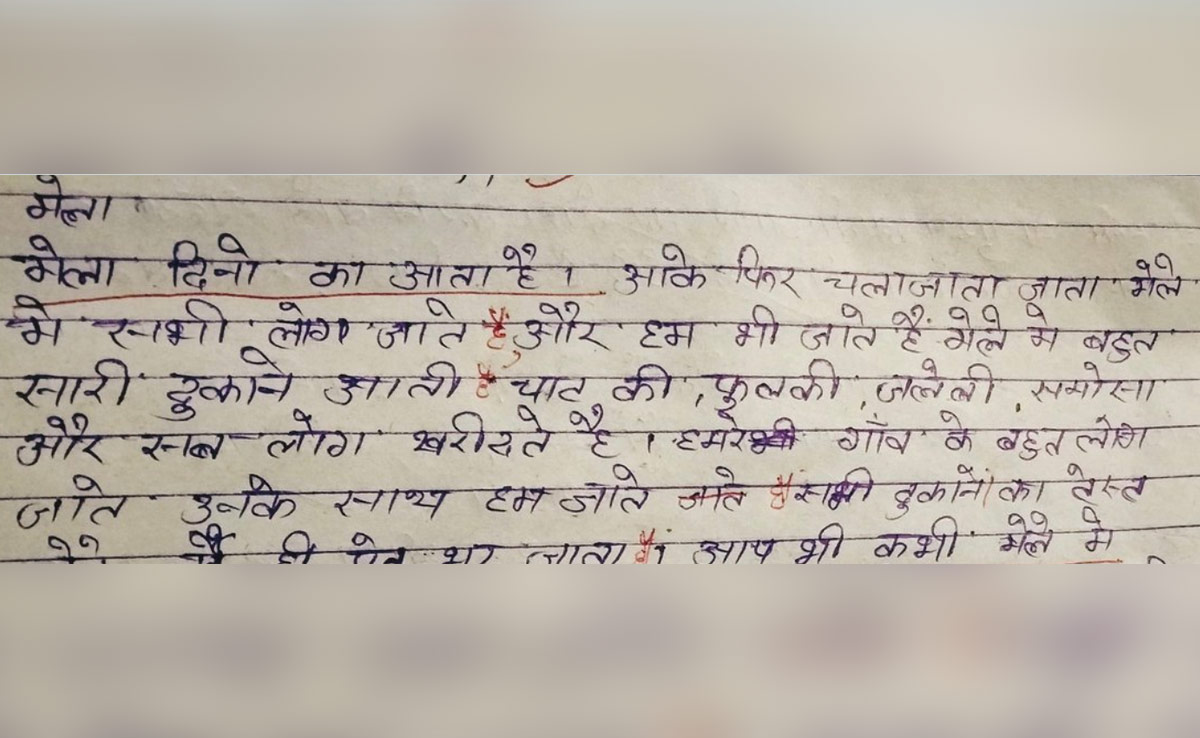 मेला
मेला दिनो का आता है। आके फिर चलाजाता जाता मेले
मे सभी लोग जाते हैं, और हम भी जाते हैं मेले मे बहुत
सारी दुकाने आती है चाट की, फुलकी, जलेली, समोसा
और सब लोग खरीदते है। हमरे गाँव के बहुत लोग
जाते उनके साथ हम जाते जाते हैं सभी दुकानों का तेस्त
ही पेत भर जाता है। आप भी कभी मेले मे